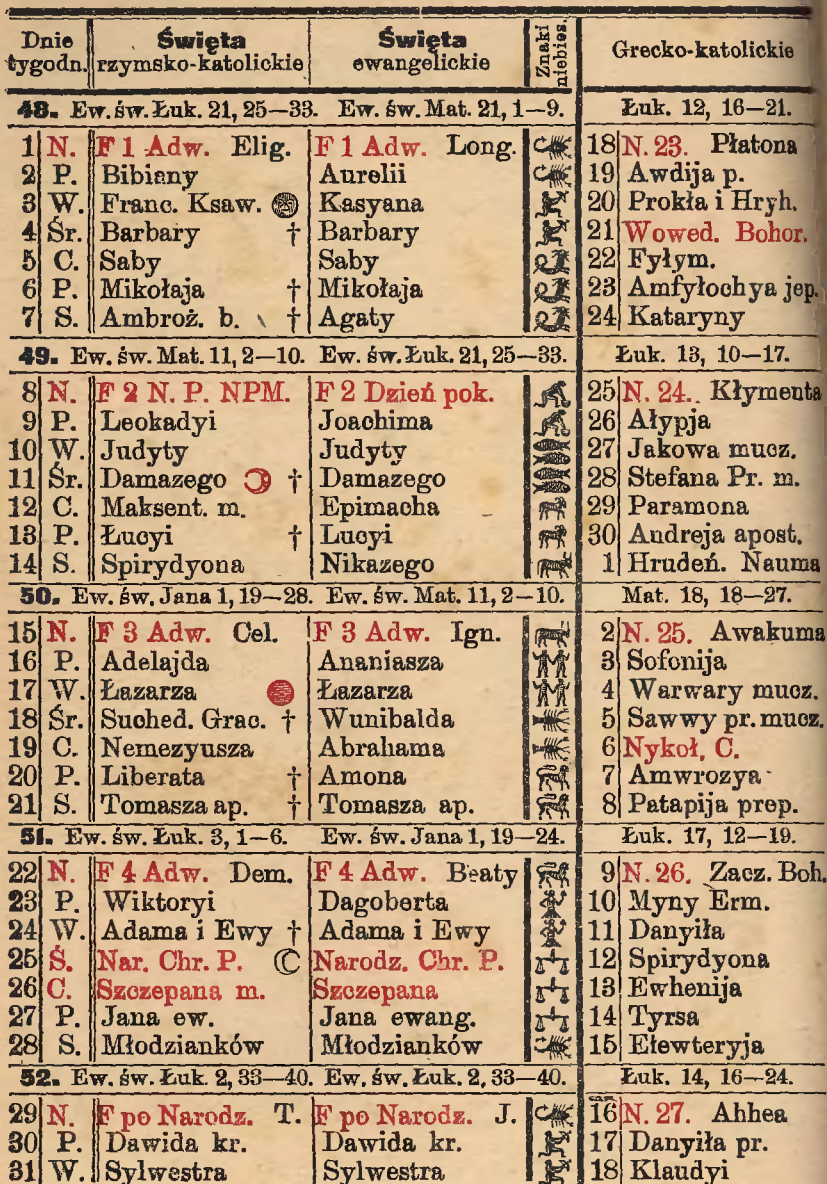 Dnie tygodn. Święta rzymsko-katolickie Święta ewangelickie Znaki niebies. Grecko-katolickie
48. Ew. św. Łuk. 21, 25—33. Ew. św. Mat. 21, 1—9. Łuk. 12, 16—21.
1 N. F 1 Adw. Elig. F 1 Adw. Long. 18 N. 23. Płatona
2 P. Bibiany Aurelii 19 Awdija p.
3 W. Franc. Ksaw. Kasyana 20 Prokła i Hryh.
4 Śr. Barbary † Barbary 21 Wowed. Bohor.
5 C. Saby Saby 22 Fyłym.
6 P. Mikołaja † Mikołaja 23 Amfyłochya jep.
7 S. Ambroż. b. † Agaty 24 Kataryny
49. Ew. św. Mat. 11, 2—10. Ew. św. Łuk. 21, 25—33. Łuk. 13, 10—17.
8 N. F 2 N. P. NPM. F 2 Dzień pok. 25 N. 24. Kłymenta
9 P. Leokadyi Joachima 26 Ałypja
10 W. Judyty Judyty 27 Jakowa mucz.
11 Śr. Damazego † Damazego 28 Stefana Pr. m.
12 C. Maksent. m. Epimacha 29 Paramona
13 P. Łucyi † Lucyi 30 Andreja apost.
14 S. Spirydyona Nikazego 1 Hrudeń. Nauma
50. Ew. św. Jana 1, 19—28. Ew. św. Mat. 11, 2—10. Mat. 18, 18—27.
15 N. F 3 Adw. Cel. F 3 Adw. Ign. 2 N. 25. Awakuma
16 P. Adelajda Ananiasza 3 Sofonija
17 W. Łazarza Łazarza 4 Warwary mucz.
18 Śr. Suched. Grac. † Wunibalda 5 Sawwy pr. mucz.
19 C. Nemezyusza Abrahama 6 Nykoł. C.
20 P. Liberata † Amona 7 Amwrozya
21 S. Tomasza ap. † Tomasza ap. 8 Patapija prep.
51. Ew. św. Łuk. 3, 1—6. Ew. św. Jana 1, 19—24. Łuk. 17, 12—19.
22 N. F 4 Adw. Dem. F 4 Adw. Beaty 9 N. 26. Zacz. Boh.
23 P. Wiktoryi Dagoberta 10 Myny Erm.
24 W. Adama i Ewy † Adama i Ewy 11 Danyiła
25 Ś. Nar. Chr. P. Narodz. Chr. P. 12 Spirydyona
26 C. Szczepana m. Szczepana 13 Ewhenija
27 P. Jana ew. Jana ewang. 14 Tyrsa
28 S. Młodzianków Młodzianków 15 Ełewteryja
52. Ew. św. Łuk. 2, 33—40. Ew. św. Łuk. 2, 33—40. Łuk. 14, 16—24.
29 N. F po Narodz. T. F po Narodz. J. 16 N. 27. Ahhea
30 P. Dawida kr. Dawida kr. 17 Danyiła pr.
31 W. Sylwestra Sylwestra 18 Klaudyi